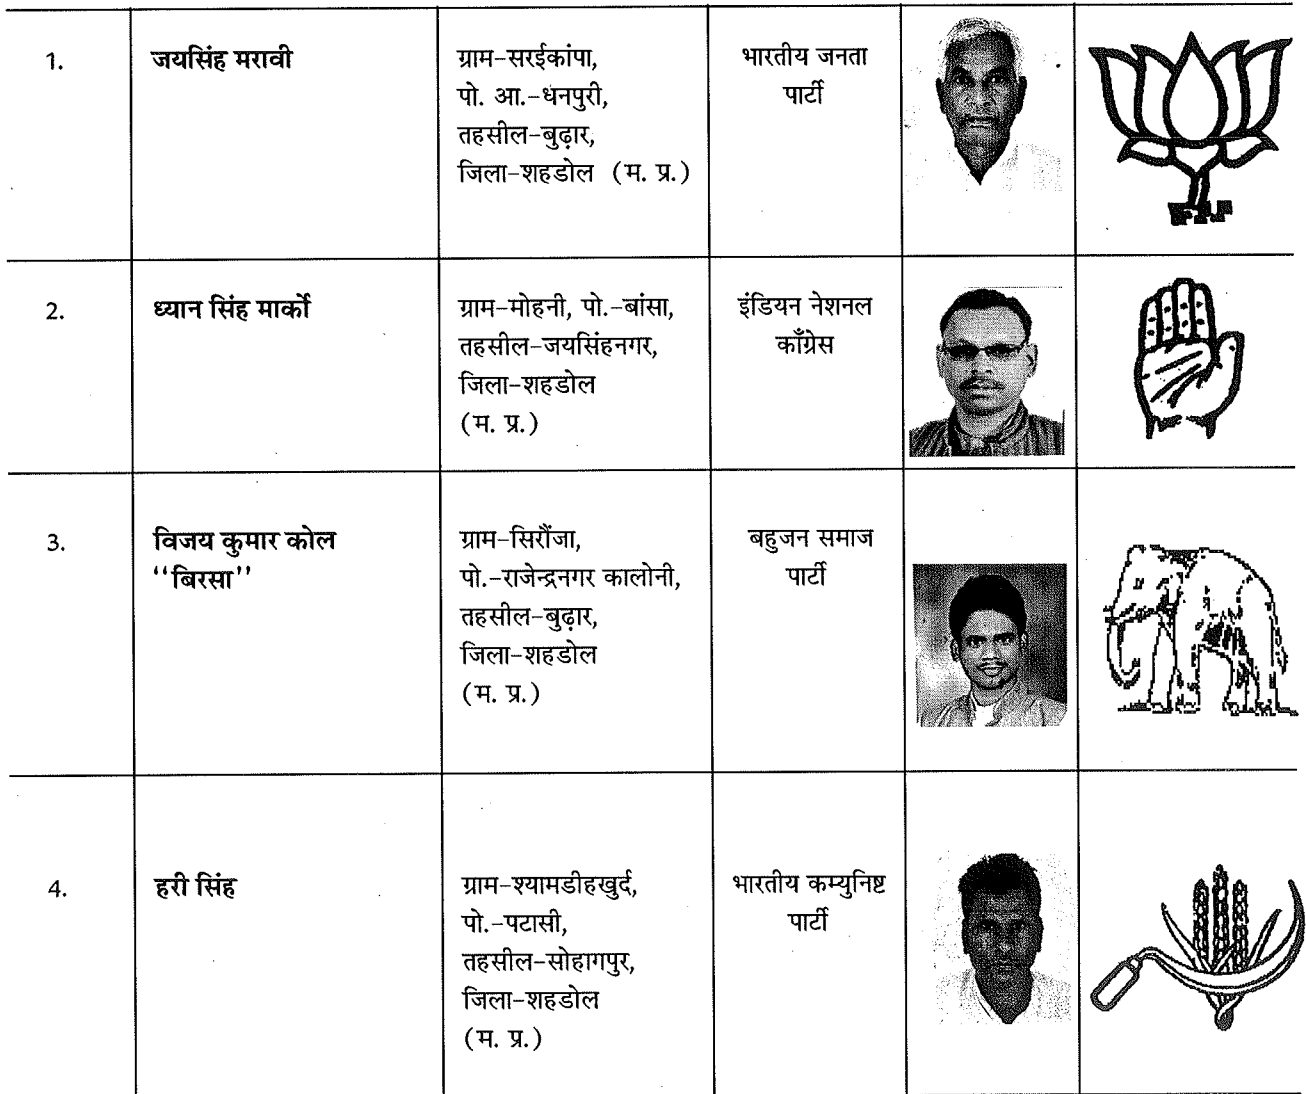 1.
जयसिंह मरावी
ग्राम-सरईकांपा,
पो. आ.-धनपुरी,
तहसील-बुढ़ार,
जिला-शहडोल (म. प्र.)
भारतीय जनता
पार्टी
2.
ध्यान सिंह मार्को
ग्राम-मोहनी, पो.-बांसा,
तहसील-जयसिंहनगर,
जिला-शहडोल
(म. प्र.)
इंडियन नेशनल
काँग्रेस
3.
विजय कुमार कोल
‘‘बिरसा’’
ग्राम-सिरौंजा,
पो.-राजेन्द्रनगर कालोनी,
तहसील-बुढ़ार,
जिला-शहडोल
(म. प्र.)
बहुजन समाज
पार्टी
4.
हरी सिंह
ग्राम-श्यामडीहखुर्द,
पो.-पटासी,
तहसील-सोहागपुर,
जिला-शहडोल
(म. प्र.)
भारतीय कम्युनिष्ट
पार्टी